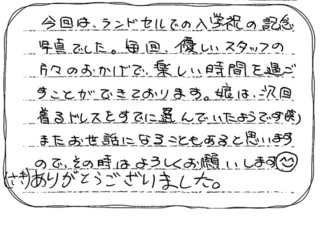 今回は、ランドセルでの入学祝の記念
写真でした。毎回、優しいスタッフの
方々のおかげで、楽しい時間を過ご
すことができております。娘は、次回
着るドレスをすでに選んでいたようです(笑)
またお世話になることもあると思います
ので、その時はよろしくお願いします
ありがとうございました。